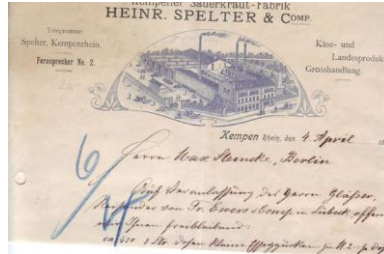 Kempener Sauerkraut-Fabrik
HEINR. SPELTER & COMP.
Telegramme:
Spelter, Kempenrhein.
Fernsprecher No. 2.
Käse- und
Landesprodukt
Grosshandlung.
Kempen Rhein, den 4. April
Herrn Max Steincke, Berlin
Auf Veranlassung des Herrn Gläser,
Reisender von Fr. Ewers & Comp in Lübeck, offen
wir Ihnen freibleibend: